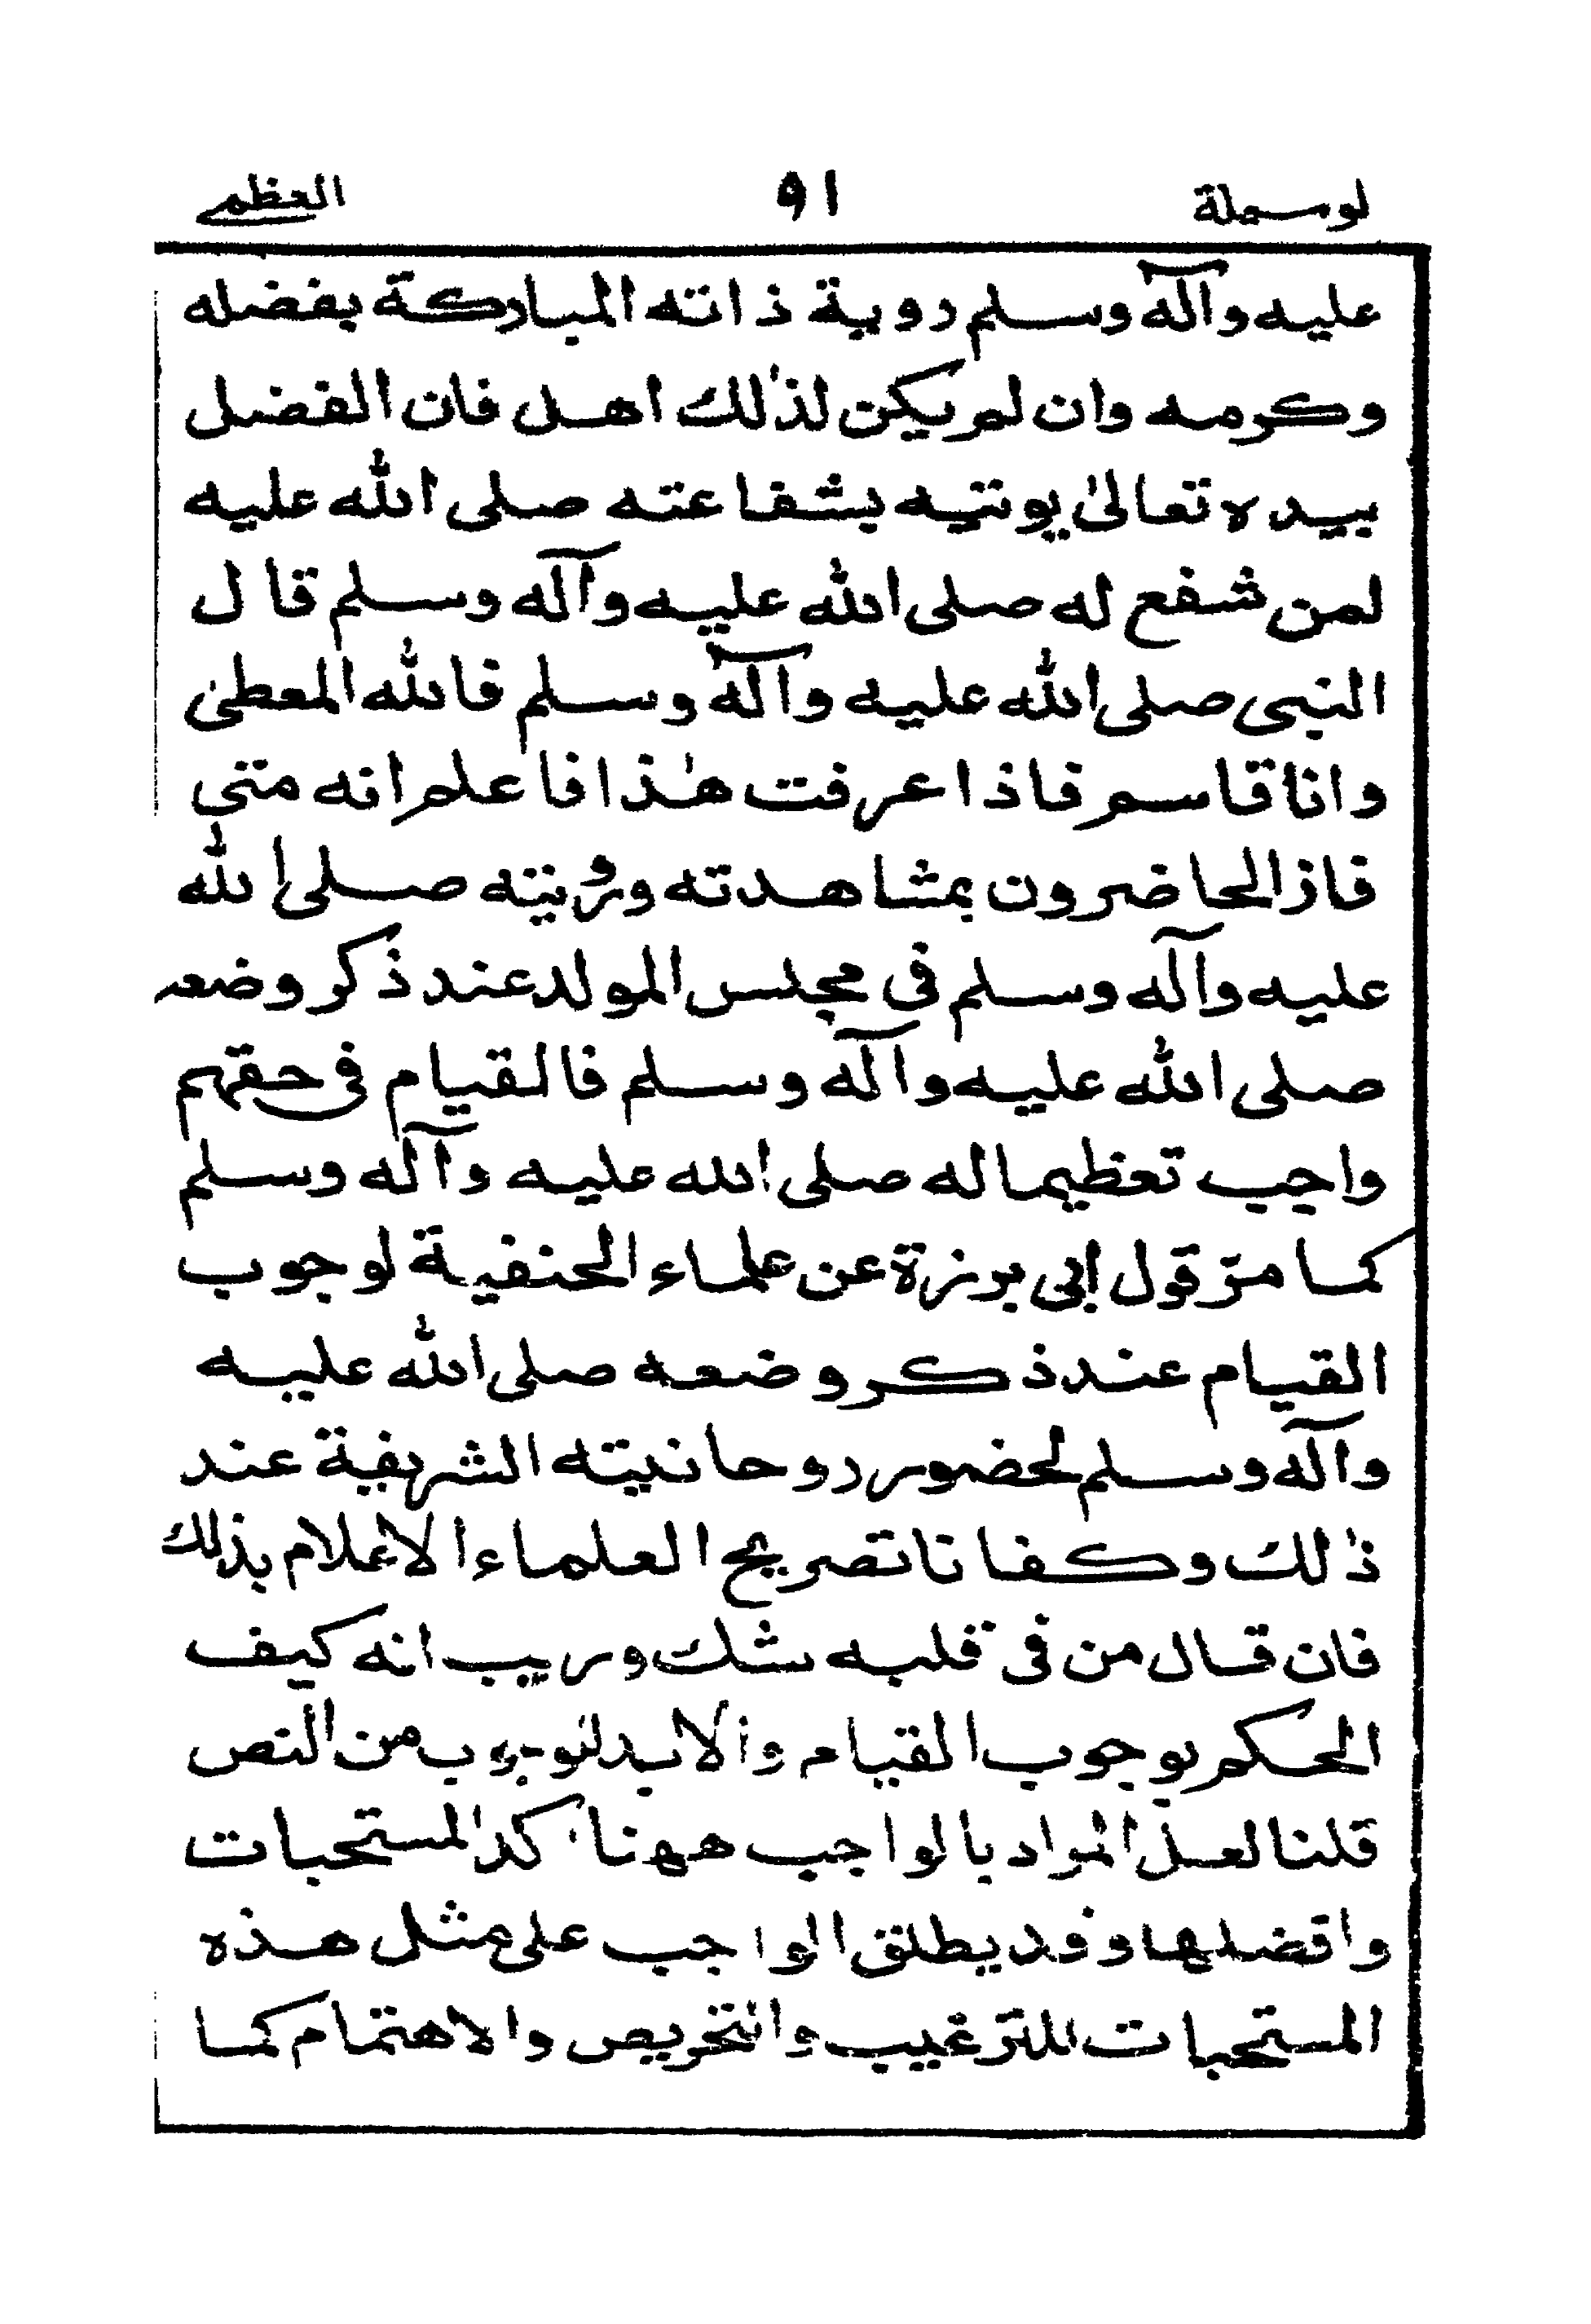 لوسيلة ٩١ العظمى
عليه وآله وسلم روية ذاته المباركة بفضله
وكرمه وان لم يكن لذلك اهل فان الفضل
بيده تعالىٰ يوتيه بشفاعته صلى الله عليه
لمن شفع له صلى الله عليه وآله وسلم قال
النبى صلى الله عليه وآله وسلم فالله المعطى
وانا قاسم فاذا عرفت هٰذا فاعلم انه متى
فاز الحاضرون بمشاهدته ورؤيته صلى الله
عليه وآله وسلم فى مجلس المولد عند ذكر وضعه
صلى الله عليه وآله وسلم فالقيام فى حقهم
واجب تعظيما له صلى الله عليه وآله وسلم
كما مرّ قول ابى برزة عن علماء الحنفية لوجوب
القيام عند ذكر وضعه صلى الله عليه
وآله وسلم لحضور روحانيته الشريفة عند
ذٰلك وكفانا تصريح العلماء الاعلام بذلك
فان قال من فى قلبه شك وريب انه كيف
الحكم بوجوب القيام و الابد للوجوب من النص
قلنا لعل المراد بالواجب ههنا اكد المستحبات
وافضلها وقد يطلق الواجب على مثل هذه
المستحبات للترغيب والتحريص والاهتمام كما